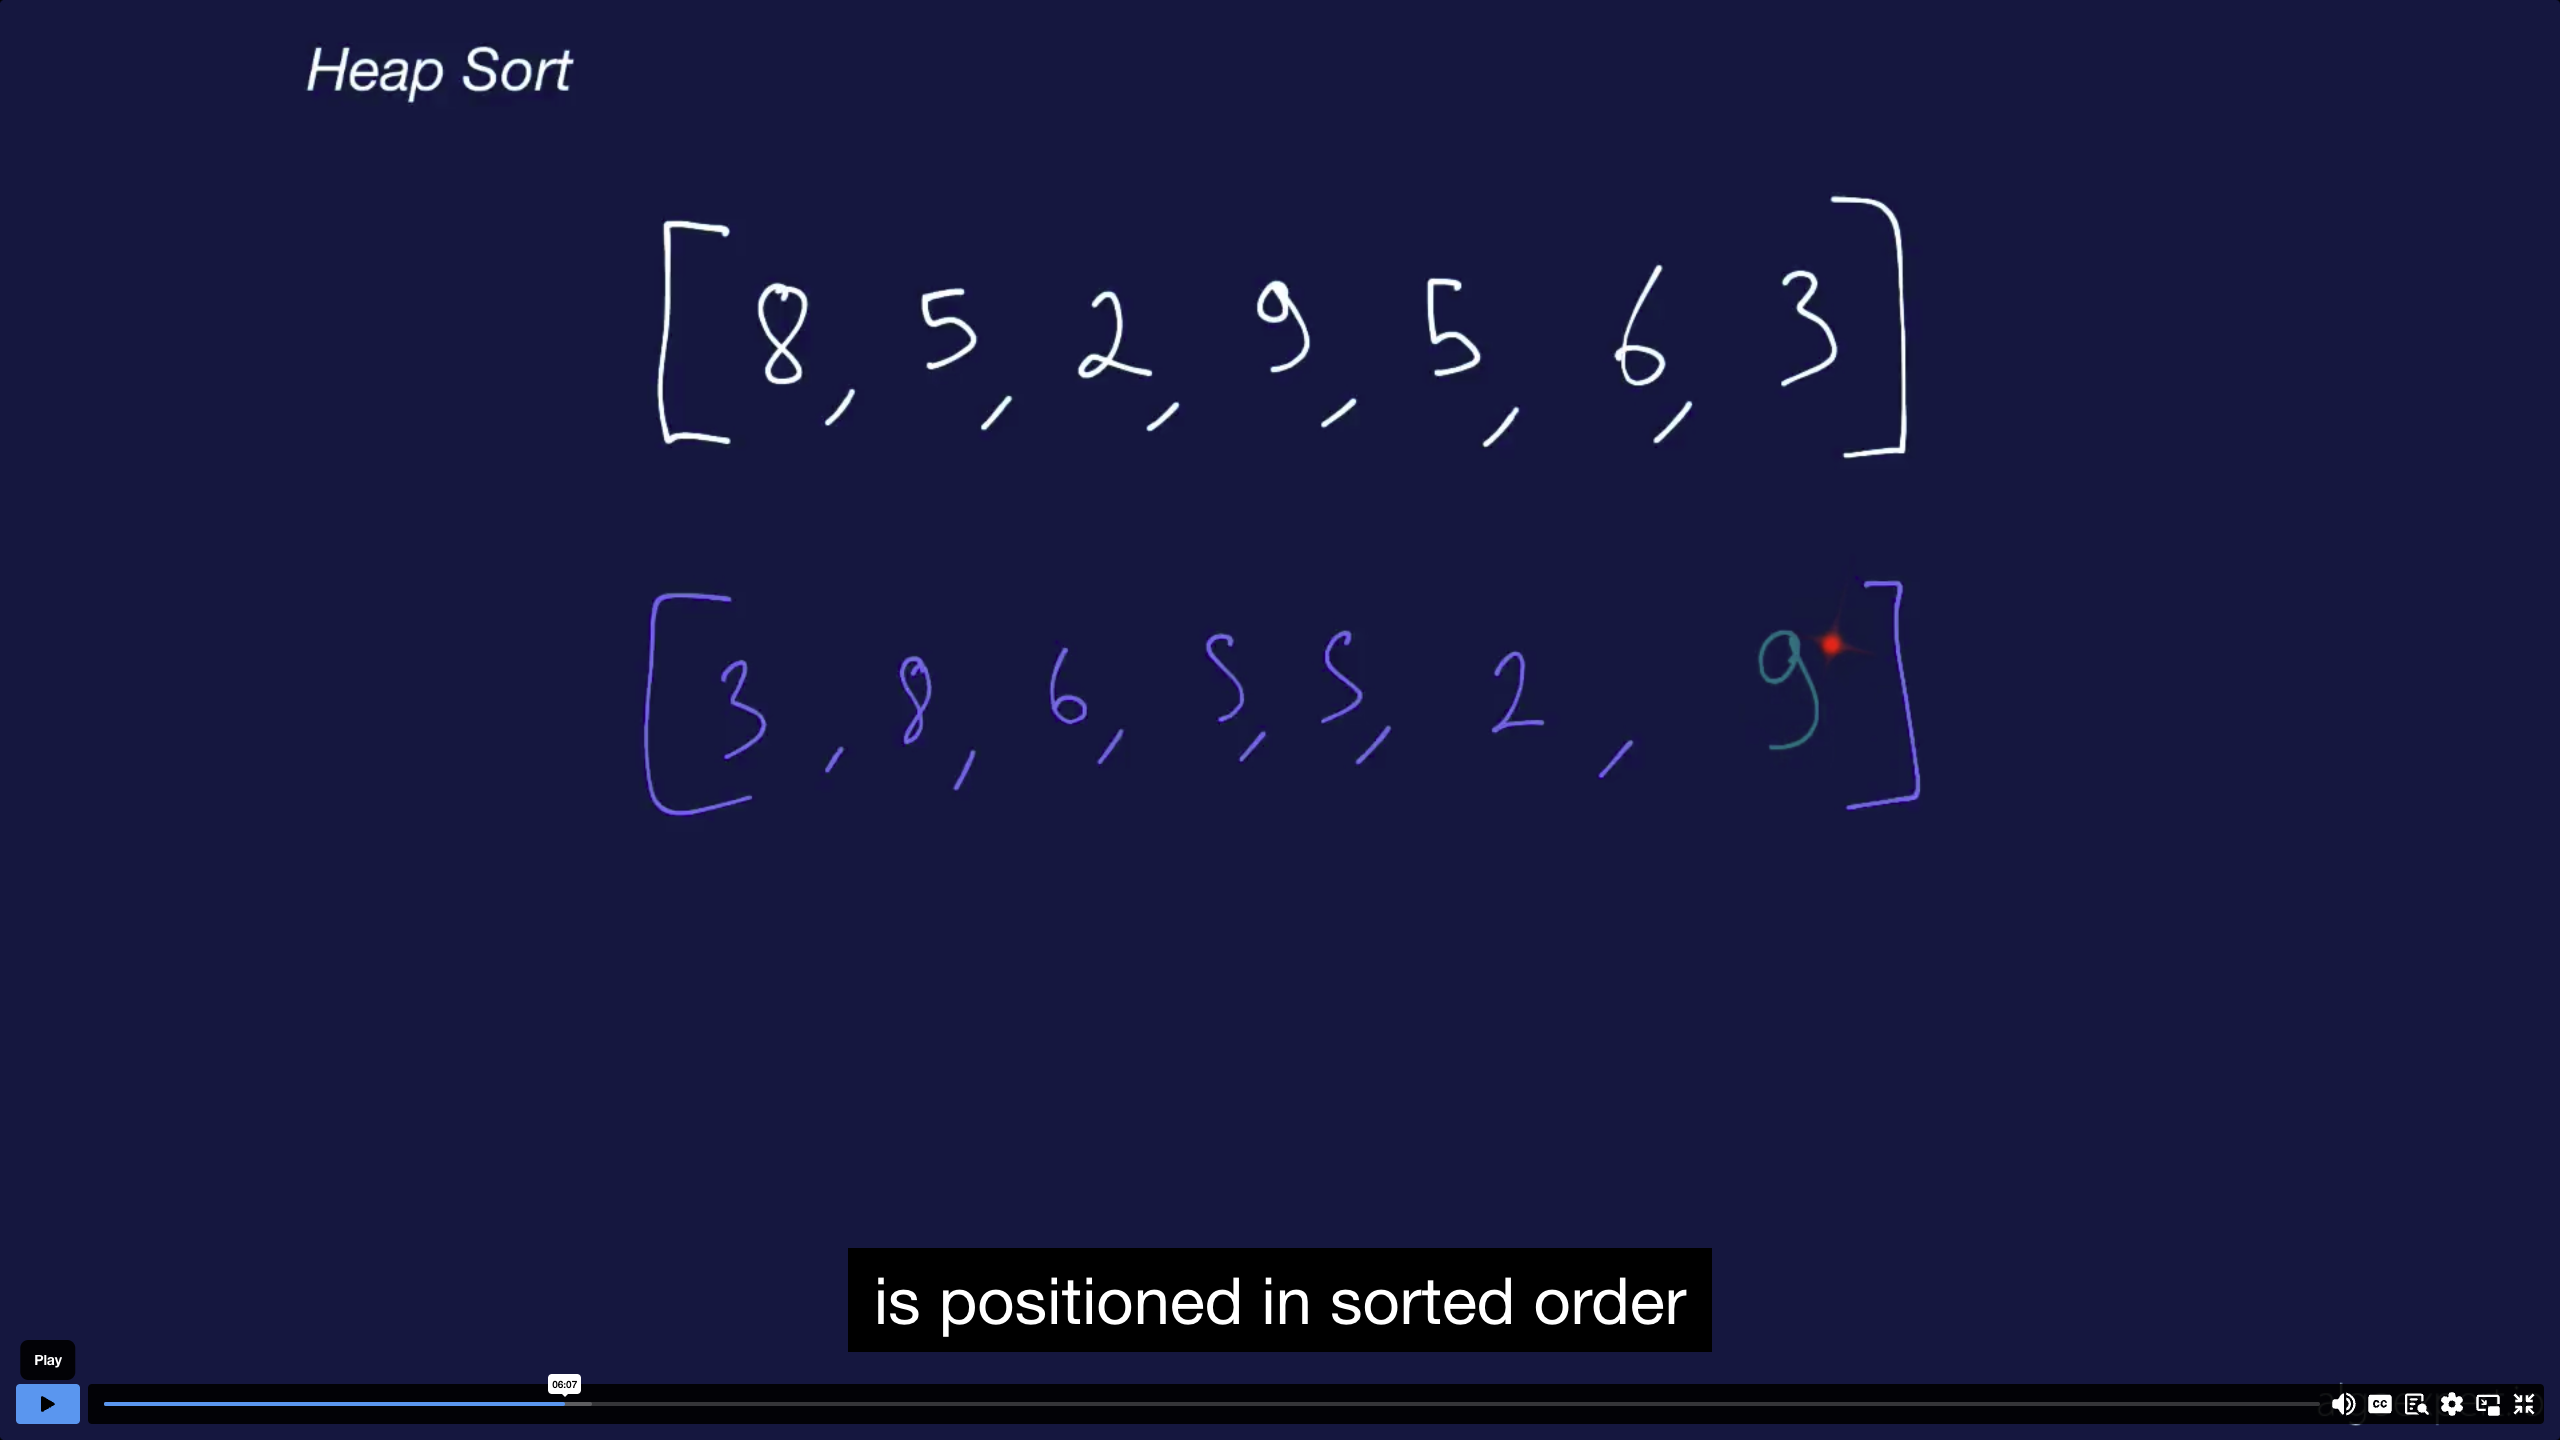 Heap Sort
[8, 5, 2, 9, 5, 6, 3]
[3, 8, 6, 5, 5, 2, 9]
is positioned in sorted order
Play
06:07
CC